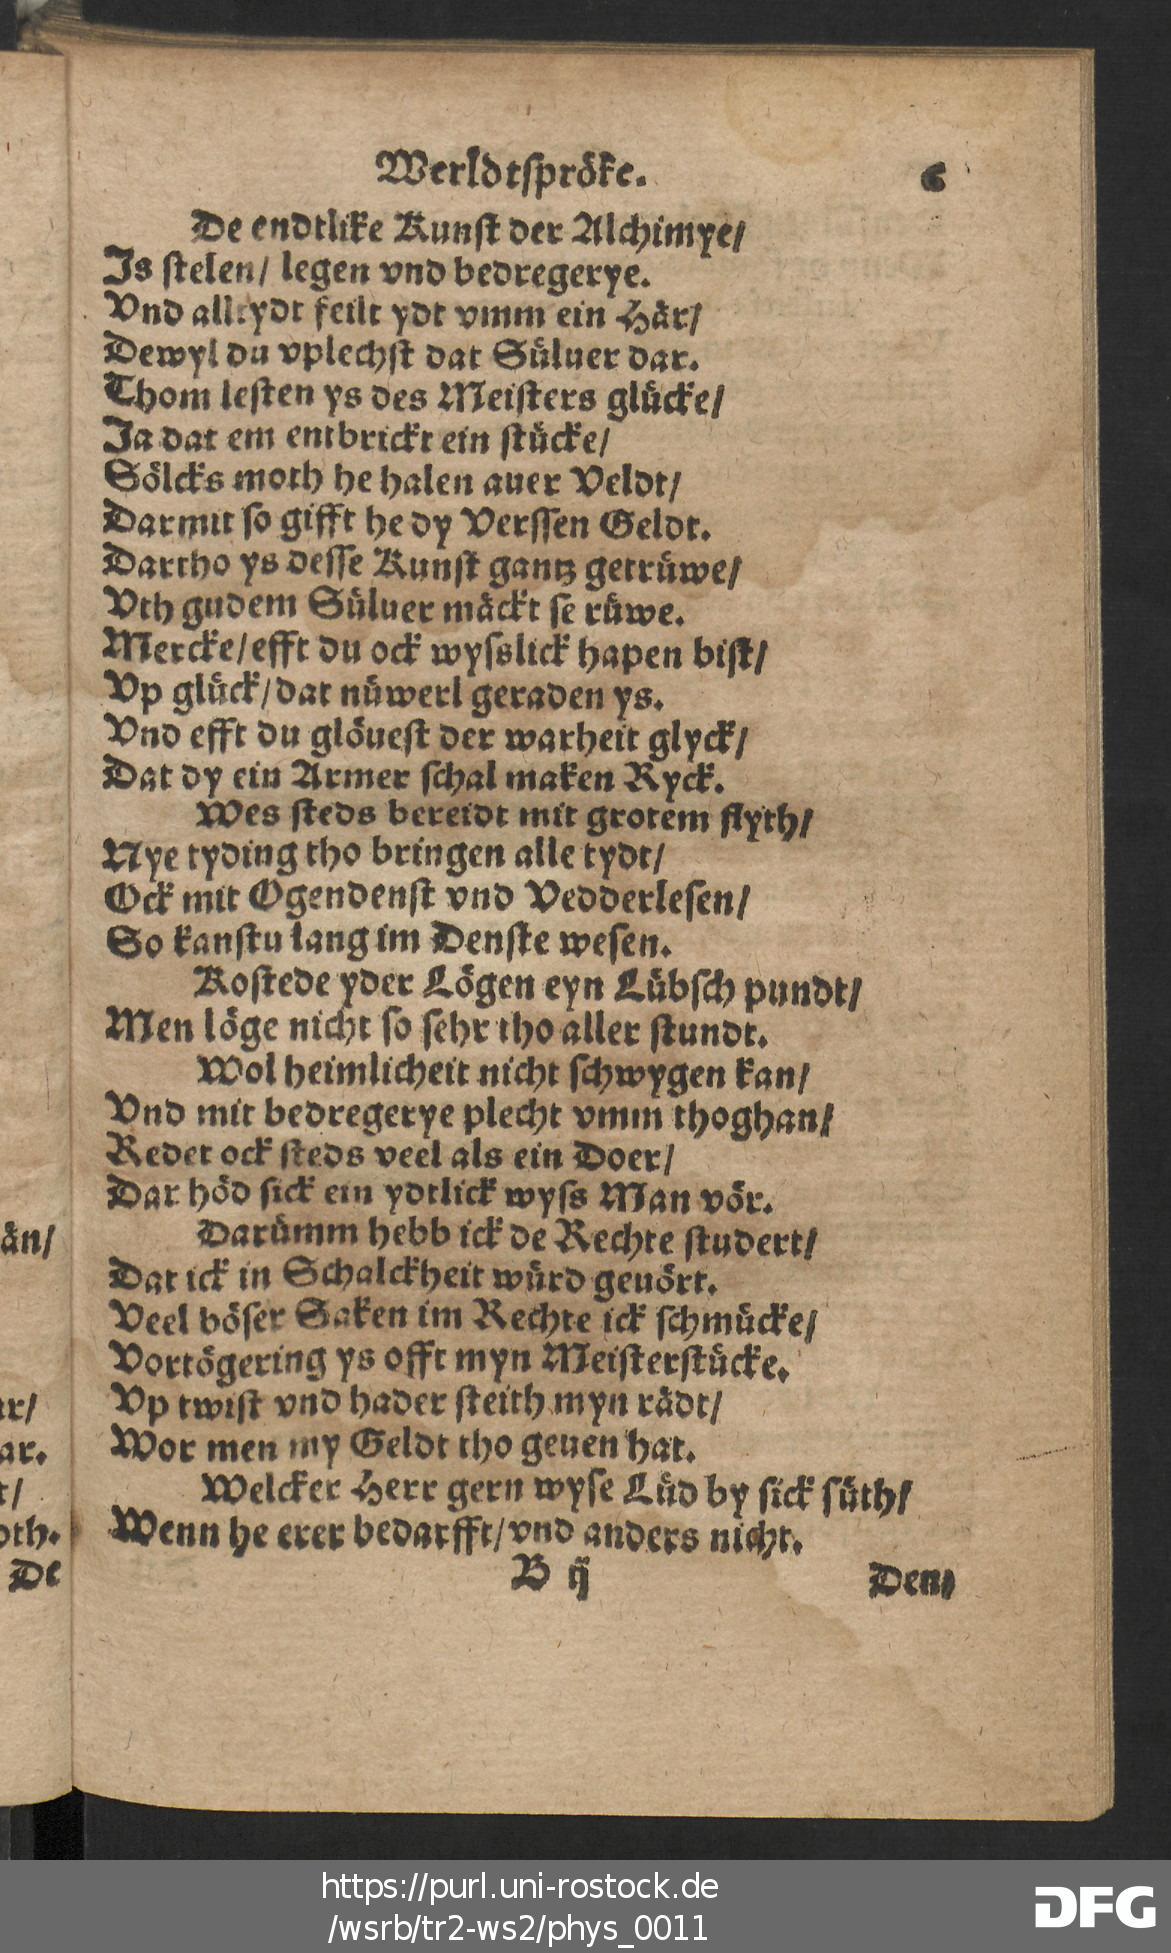 Werldtspröke. 6
De endtlike Kunst der Alchimye/
Js stelen/ legen vnd bedregerye.
Vnd alltydt feilt ydt vmm ein Här/
Dewyl du vplechst dat Süluer dar.
Thom lesten ys des Meisters glücke/
Ja dat em entbrickt ein stücke/
Sölcks moth he halen auer Veldt/
Darmit so gifft he dy Verssen Geldt.
Dartho ys desse Kunst gantz getrüwe/
Vth gudem Süluer mäckt se rüwe.
Mercke/ efft du ock wysslick hapen bist/
Vp glück/ dat nüwerl geraden ys.
Vnd efft du glöuest der warheit glyck/
Dat dy ein Armer schal maken Ryck.
Wes steds bereidt mit grotem flyth/
Nye tyding tho bringen alle tydt/
Ock mit Ogendenst vnd Vedderlesen/
So kanstu lang im Denste wesen.
Kostede yder Lögen eyn Lübsch pundt/
Men löge nicht so sehr tho aller stundt.
Wol heimlicheit nicht schwygen kan/
Vnd mit bedregerye plecht vmm thoghan/
Redet ock steds veel als ein Doer/
Dar höd sick ein ydtlick wyss Man vör.
Darümm hebb ick de Rechte studert/
Dat ick in Schalckheit würd geuört.
Veel böser Saken im Rechte ick schmücke/
Vortögering ys offt myn Meisterstücke.
Vp twist vnd hader steith myn rädt/
Wor men my Geldt tho geuen hat.
Welcker Herr gern wyse Lüd by sick süth/
Wenn he erer bedarfft/ vnd anders nicht.
B ij Den/
än/
ar.
oth.
De
https://purl.uni-rostock.de
/wsrb/tr2-ws2/phys_0011
DFG